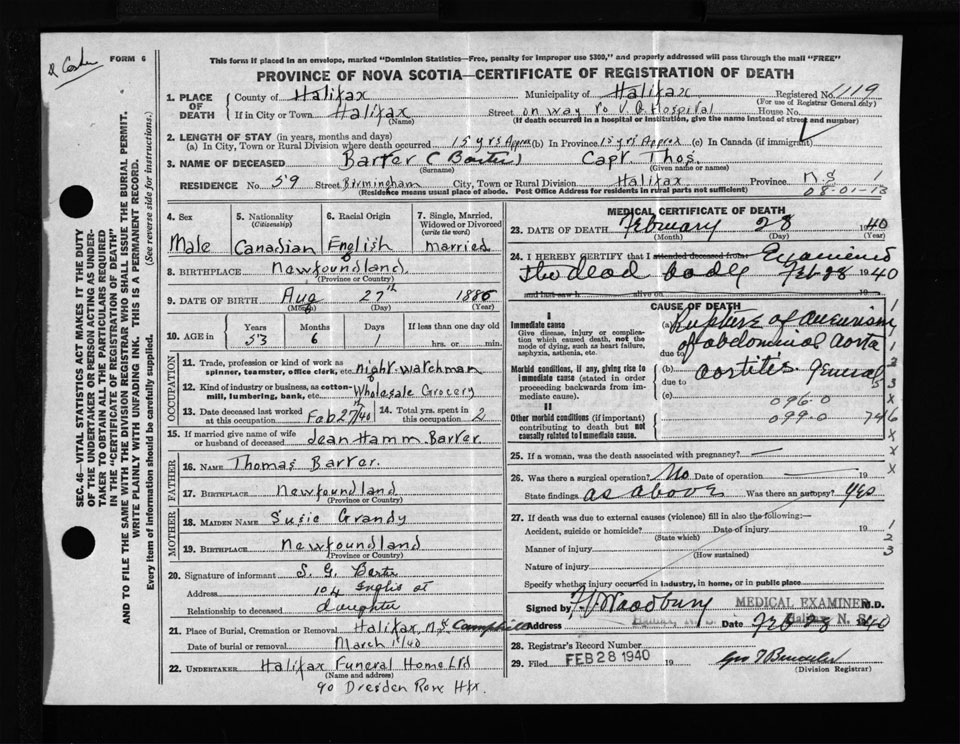 FORM 6
This form if placed in an envelope, marked "Dominion Statistics—Free, penalty for improper use $300," and properly addressed will pass through the mail "FREE"
PROVINCE OF NOVA SCOTIA—CERTIFICATE OF REGISTRATION OF DEATH
1. PLACE OF DEATH
County of Halifax Municipality of Halifax Registered No. 1119
(For use of Registrar General only)
If in City or Town Halifax Street on way to V.G. Hospital House No.
(Name) (If death occurred in a hospital or institution, give the name instead of street and number)
2. LENGTH OF STAY (in years, months and days)
(a) In City, Town or Rural Division where death occurred 15 yrs Approx (b) In Province 15 yrs Approx (c) In Canada (if immigrant)
3. NAME OF DECEASED Barter (Baxter) Capt. Thos.
(Surname) (Given name or names)
RESIDENCE No. 59 Street Birmingham City, Town or Rural Division Halifax Province N.S 1
(Residence means usual place of abode. Post Office Address for residents in rural parts not sufficient) 08-01-13
4. Sex 5. Nationality (Citizenship) 6. Racial Origin 7. Single, Married, Widowed or Divorced (write the word)
Male Canadian English married
8. BIRTHPLACE Newfoundland.
(Province or Country)
9. DATE OF BIRTH Aug 27th 1886
(Month) (Day) (Year)
10. AGE in Years Months Days If less than one day old
53 6 1 hrs. or min.
OCCUPATION
11. Trade, profession or kind of work as spinner, teamster, office clerk, etc. night-watchman
12. Kind of industry or business, as cotton-mill, lumbering, bank, etc. Wholesale Grocery
13. Date deceased last worked at this occupation Feb 27/40 14. Total yrs. spent in this occupation 2
15. If married give name of wife or husband of deceased Jean Hamm Barter.
FATHER
16. NAME Thomas Barter.
17. BIRTHPLACE Newfoundland
(Province or Country)
MOTHER
18. MAIDEN NAME Susie Grandy
19. BIRTHPLACE Newfoundland
(Province or Country)
20. Signature of informant S. G. Barter
Address 104 Inglis st
Relationship to deceased daughter
21. Place of Burial, Cremation or Removal Halifax, N.S. Camphill
Date of burial or removal March 1st/40
22. UNDERTAKER Halifax Funeral Home Ltd
(Name and address)
90 Dresden Row Hfx.
MEDICAL CERTIFICATE OF DEATH
23. DATE OF DEATH February 28 1940
(Month) (Day) (Year)
24. I HEREBY CERTIFY that I attended deceased from Examined
the dead body Feb 28 1940
and last saw h alive on 19
CAUSE OF DEATH
I
Immediate cause
Give disease, injury or complication which caused death, not the mode of dying, such as heart failure, asphyxia, asthenia, etc.
(a) Rupture of aneurism
due to of abdominal aorta
Morbid conditions, if any, giving rise to immediate cause (stated in order proceeding backwards from immediate cause).
(b) aortitis general
due to
(c) 096-0
II
Other morbid conditions (if important) contributing to death but not causally related to immediate cause.
099-0 746
25. If a woman, was the death associated with pregnancy?
26. Was there a surgical operation? No Date of operation 19
State findings as above Was there an autopsy? Yes
27. If death was due to external causes (violence) fill in also the following:—
Accident, suicide or homicide? Date of injury 19
(State which)
Manner of injury
(How sustained)
Nature of injury
Specify whether injury occurred in industry, in home, or in public place
1
2
3
Signed by F.V. Woodbury MEDICAL EXAMINER M.D.
Address Halifax, N. S. Date Feb 28 1940
28. Registrar's Record Number
29. Filed FEB 28 1940 19
(Division Registrar)
SEC. 46—VITAL STATISTICS ACT MAKES IT THE DUTY OF THE UNDERTAKER OR PERSON ACTING AS UNDERTAKER TO OBTAIN ALL THE PARTICULARS REQUIRED IN THE "CERTIFICATE OF REGISTRATION OF DEATH"
AND TO FILE THE SAME WITH THE DIVISION REGISTRAR WHO SHALL ISSUE THE BURIAL PERMIT.
WRITE PLAINLY WITH UNFADING INK. THIS IS A PERMANENT RECORD.
Every item of information should be carefully supplied. (See reverse side for instructions.)